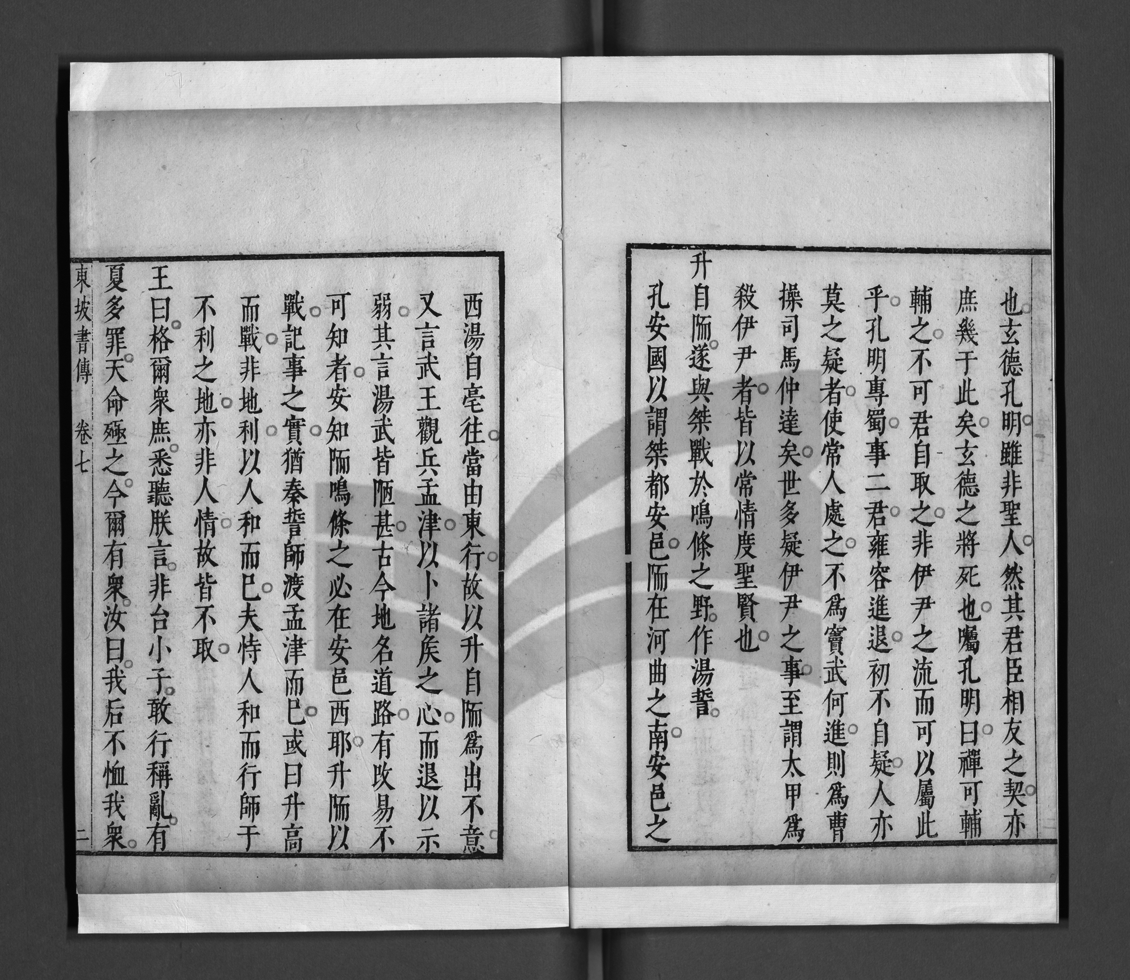 也玄德孔明雖非聖人然其君臣相友之契亦
庶幾于此矣玄德之將死也囑孔明曰禪可輔
輔之不可君自取之非伊尹之流而可以屬此
乎孔明專蜀事二君雍容進退初不自疑人亦
莫之疑者使常人處之不爲竇武何進則爲曹
操司馬仲達矣世多疑伊尹之事至謂太甲爲
殺伊尹者皆以常情度聖賢也
升自陑遂與桀戰於鳴條之野作湯誓
孔安國以謂桀都安邑陑在河曲之南安邑之
西湯自亳往當由東行故以升自陑爲出不意
又言武王觀兵孟津以卜諸矦之心而退以示
弱其言湯武皆陋甚古今地名道路有攺易不
可知者安知陑鳴條之必在安邑西耶升陑以
戰記事之實猶秦誓師渡孟津而已或曰升高
而戰非地利以人和而已夫恃人和而行師于
不利之地亦非人情故皆不取
王曰格爾衆庶悉聽朕言非台小子敢行稱亂有
夏多罪天命殛之今爾有衆汝曰我后不恤我衆
東坡書傳 卷七 二